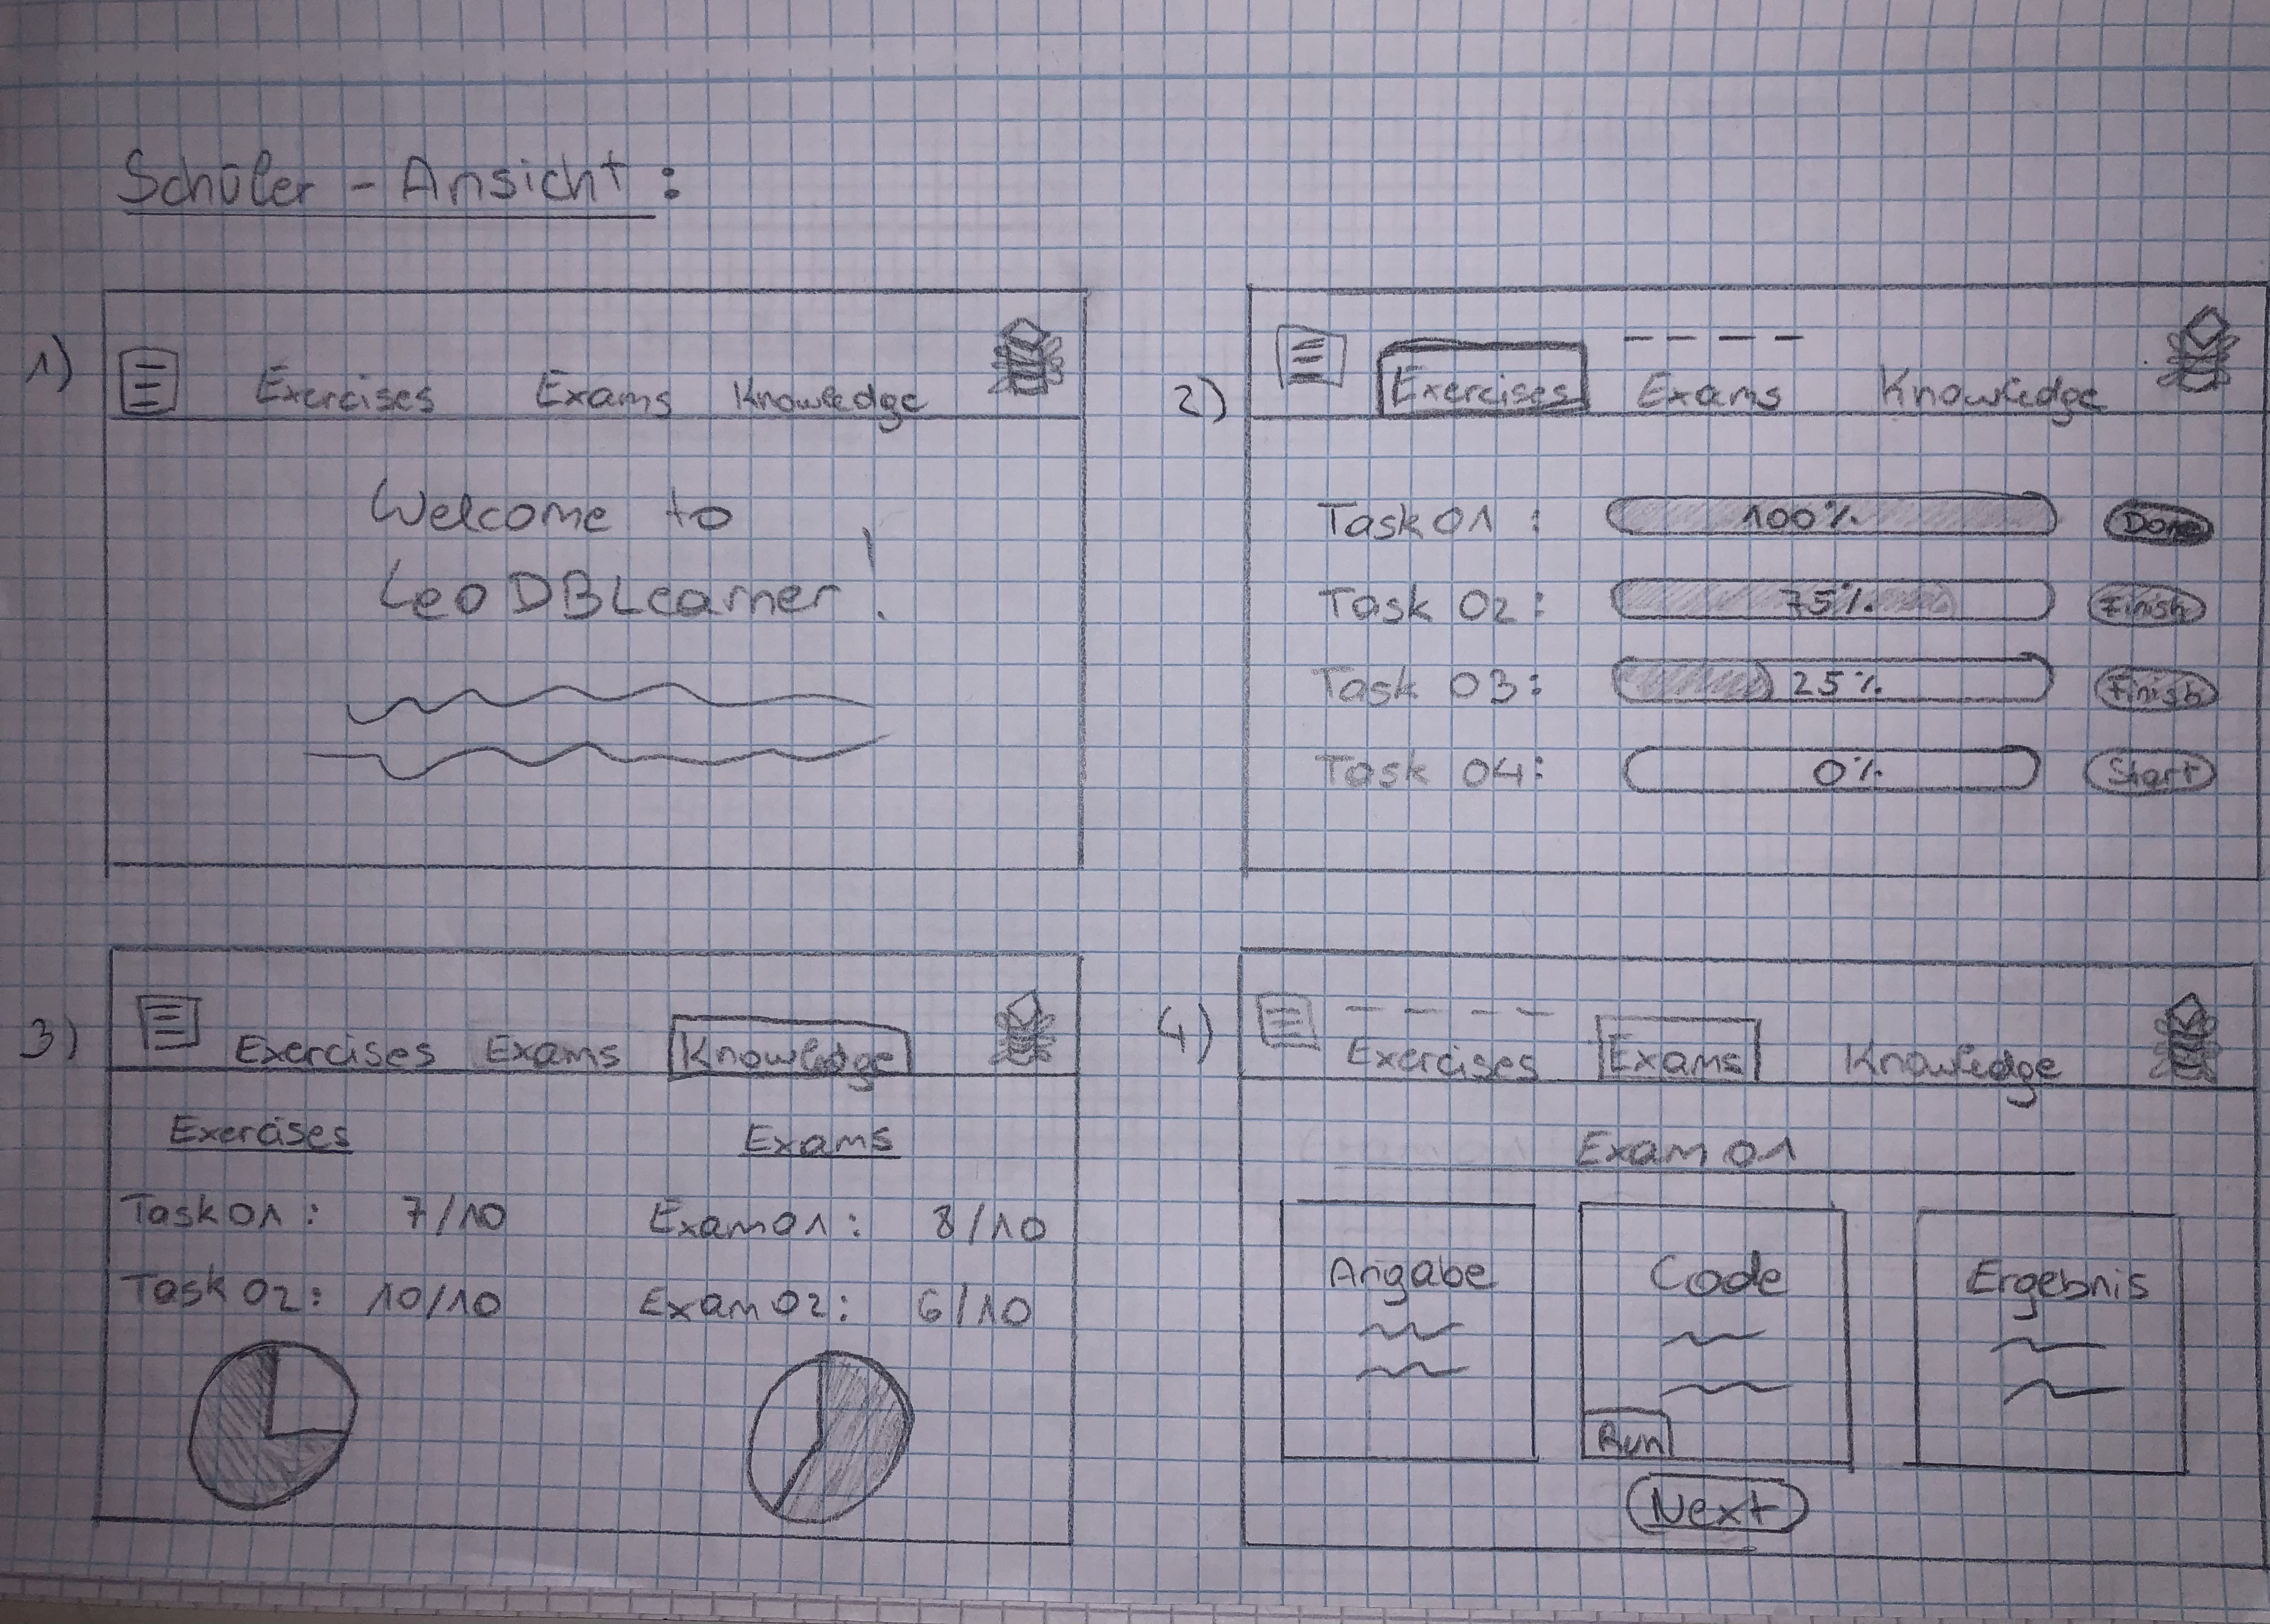 Schüler - Ansicht:
1)
Exercises Exams Knowledge
Welcome to
LeoDBLearner!
2)
Exercises Exams Knowledge
Task 01: 100% Done
Task 02: 75% Finish
Task 03: 25% Finish
Task 04: 0% Start
3)
Exercises Exams Knowledge
Exercises Exams
Task 01: 7/10 Exam 01: 8/10
Task 02: 10/10 Exam 02: 6/10
4)
Exercises Exams Knowledge
Exam 01
Angabe Code Ergebnis
Run
Next